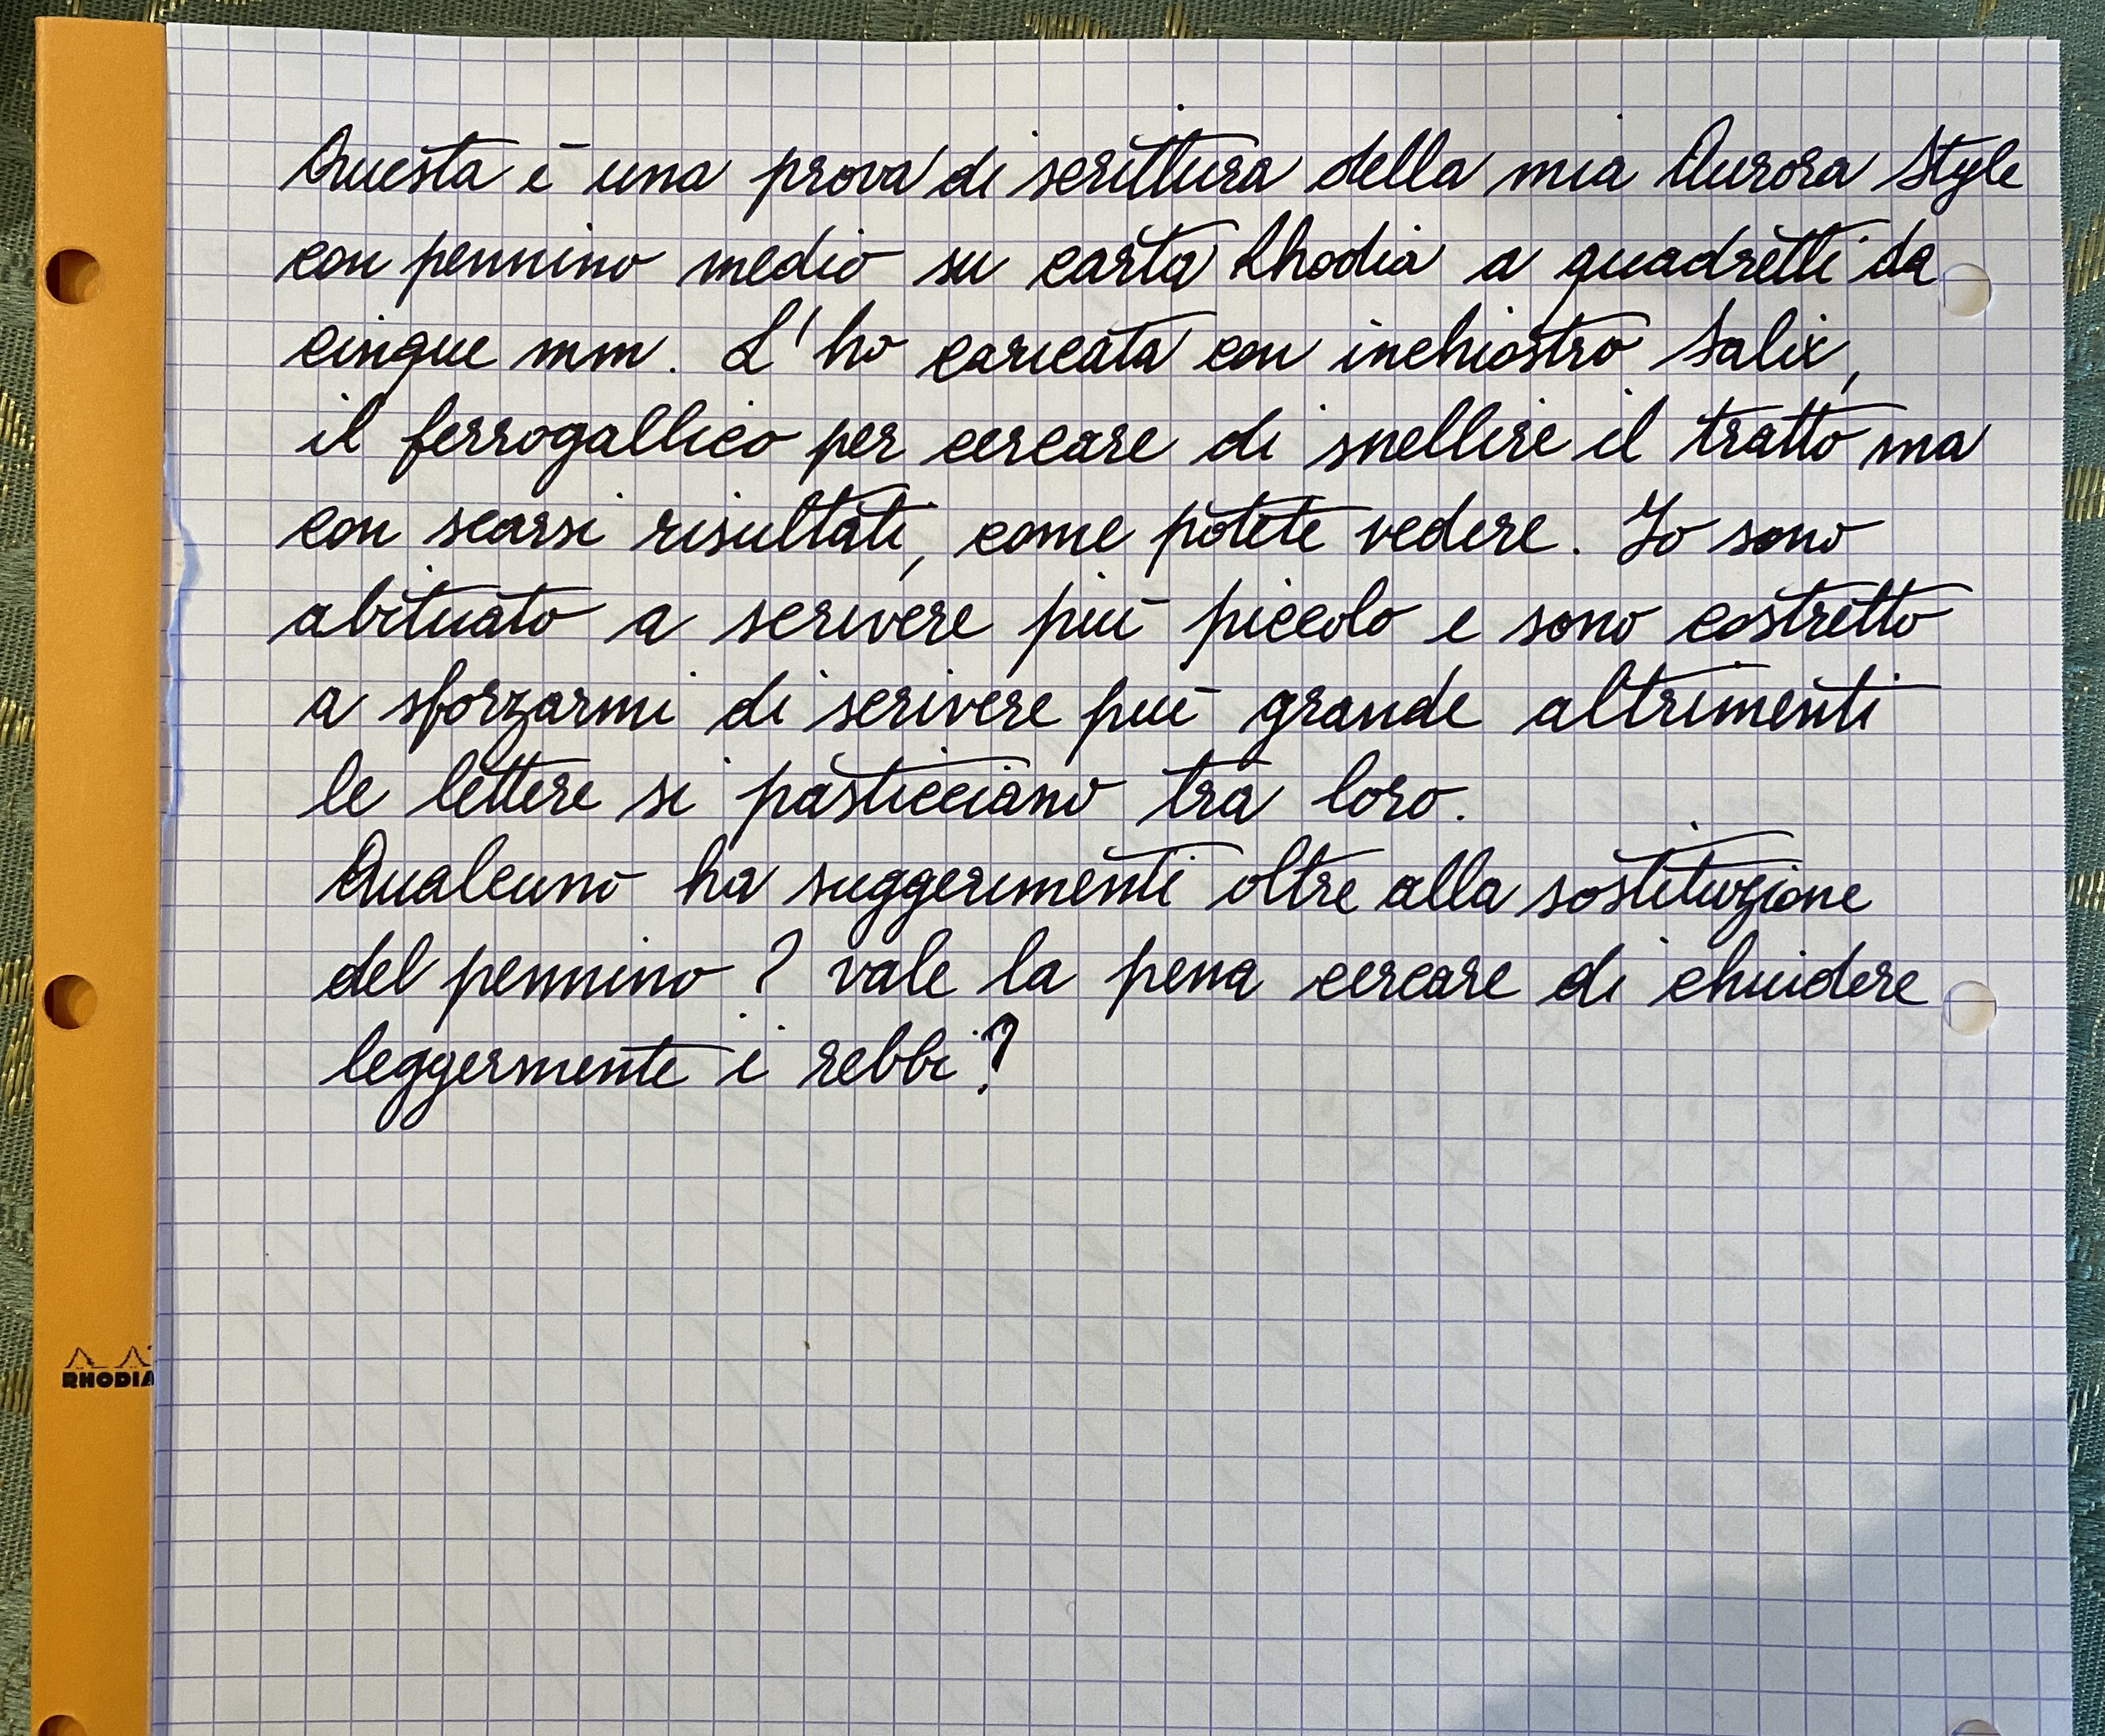 Questa è una prova di scrittura della mia Aurora Style
con pennino medio su carta Rhodia a quadretti da
cinque mm. L'ho caricata con inchiostro Salix,
il ferrogallico per cercare di snellire il tratto ma
con scarsi risultati, come potete vedere. Io sono
abituato a scrivere più piccolo e sono costretto
a sforzarmi di scrivere più grande altrimenti
le lettere si pasticciano tra loro.
Qualcuno ha suggerimenti oltre alla sostituzione
del pennino? vale la pena cercare di chiudere
leggermente i rebbi?
RHODIA